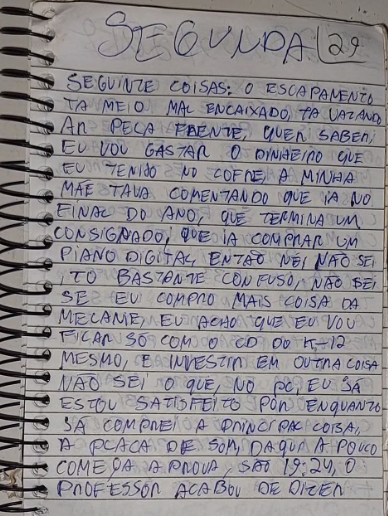 SEGUNDA 29
SEGUINTE COISAS: O ESCAPAMENTO
TA MEIO MAL ENCAIXADO, TA VAZANDO
AR PELA FRENTE, QUER SABER,
EU VOU GASTAR O DINHEIRO QUE
EU TENHO NO COFRE, A MINHA
MÃE TAVA COMENTANDO QUE IA NO
FINAL DO ANO, QUE TERMINA UM
CONSIGNADO, QUE IA COMPRAR UM
PIANO DIGITAL, ENTÃO NÉ, NÃO SEI
, TO BASTANTE CONFUSO, NÃO SEI
SE EU COMPRO MAIS COISA DA
MECAME, EU ACHO QUE EU VOU
FICAR SÓ COM O CD DO K-12
MESMO, E INVESTIR EM OUTRA COISA
NÃO SEI O QUE, NO PC, EU JA
ESTOU SATISFEITO POR ENQUANTO
JA COMPREI A PRINCIPAL COISA,
A PLACA DE SOM, DAQUI A POUCO
COMEÇA A PROVA, SÃO 19:24, O
PROFESSOR ACABOU DE DIZER